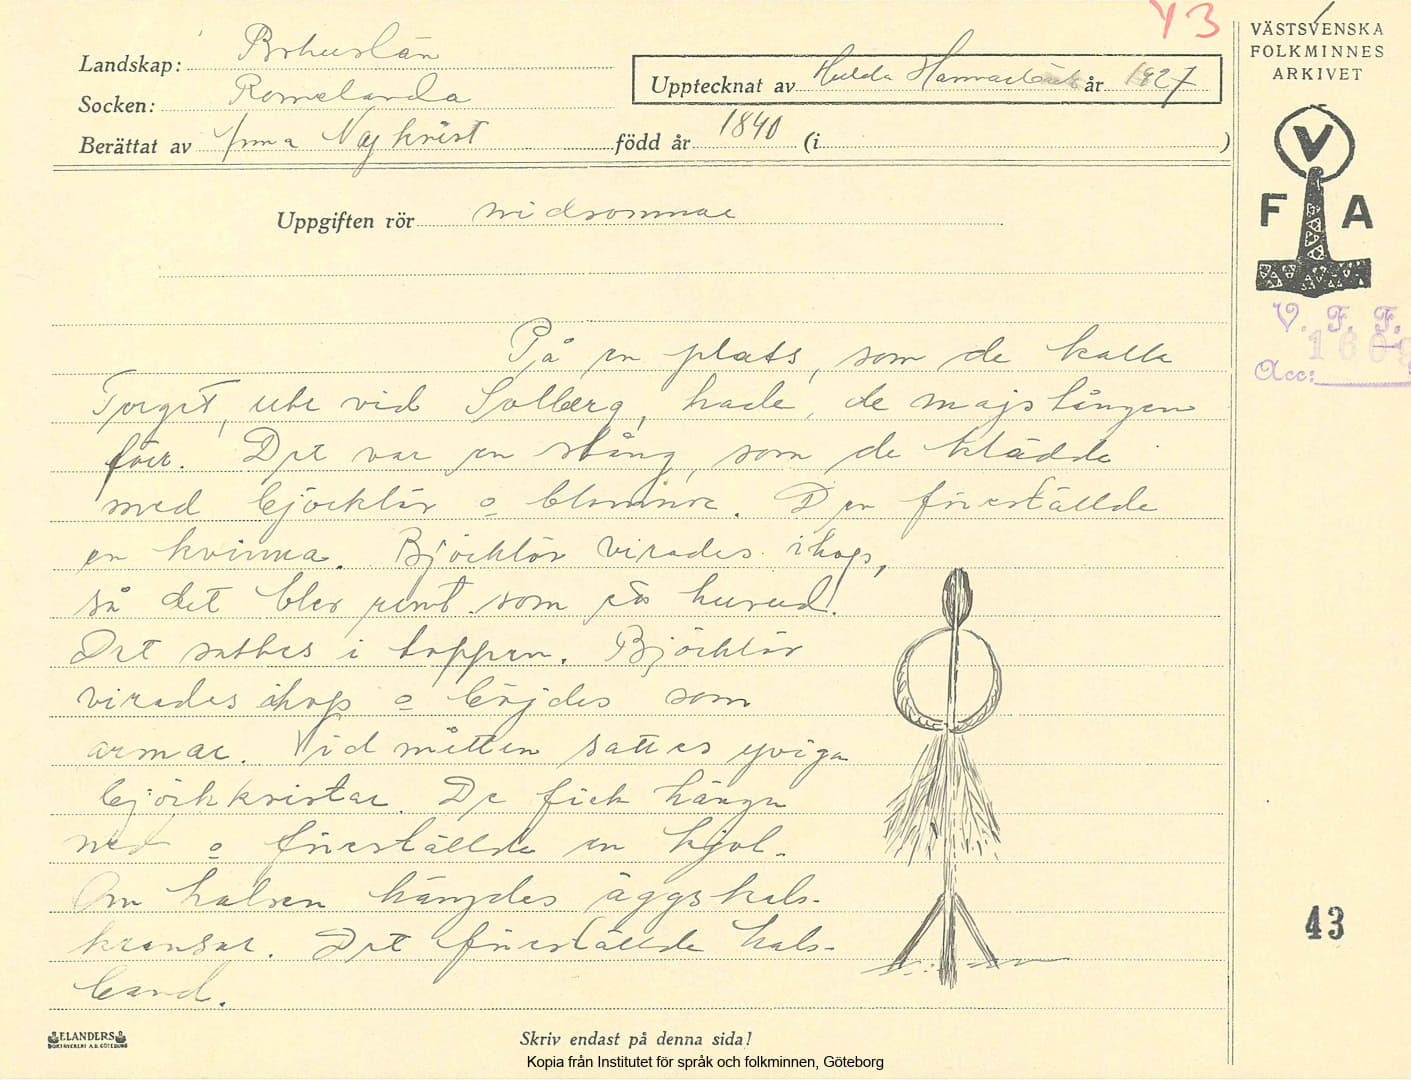 43
VÄSTSVENSKA
FOLKMINNES
ARKIVET
Landskap: Bohuslän
Socken: Romelanda
Upptecknat av Hulda Hammarbäck år 1927
Berättat av Anna Nykvist född år 1840 (i )
V
F A
Uppgiften rör midsommar
V. F. F.
1609
Acc:
På en plats, som de kalla
Torget, ute vid Solberg, hade de majstången
förr. Det var en stång, som de klädde
med björklöv o blommor. Den föreställde
en kvinna. Björklöv virades ihop,
så det blev runt som ett huvud.
Det sattes i toppen. Björklöv
virades ihop o böjdes som
armar. Vid mitten sattes yviga
björkkvistar. De fick hänga
ned o föreställde en kjol.
Om halsen hängdes äggskals-
kransar. Det föreställde hals-
band.
43
ELANDERS
BOKTRYCKERI A.B. GÖTEBORG
Skriv endast på denna sida!
Kopia från Institutet för språk och folkminnen, Göteborg